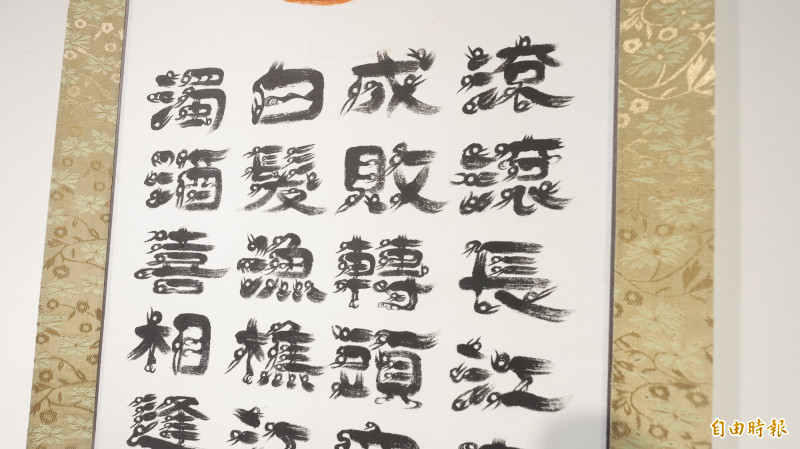 滾滾長江
成敗轉頭
白髮漁樵江
濁酒喜相逢
自由時報